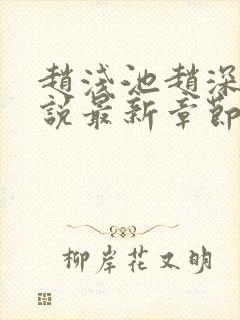 趙淺池趙深
說最新章節
柳岸花又明